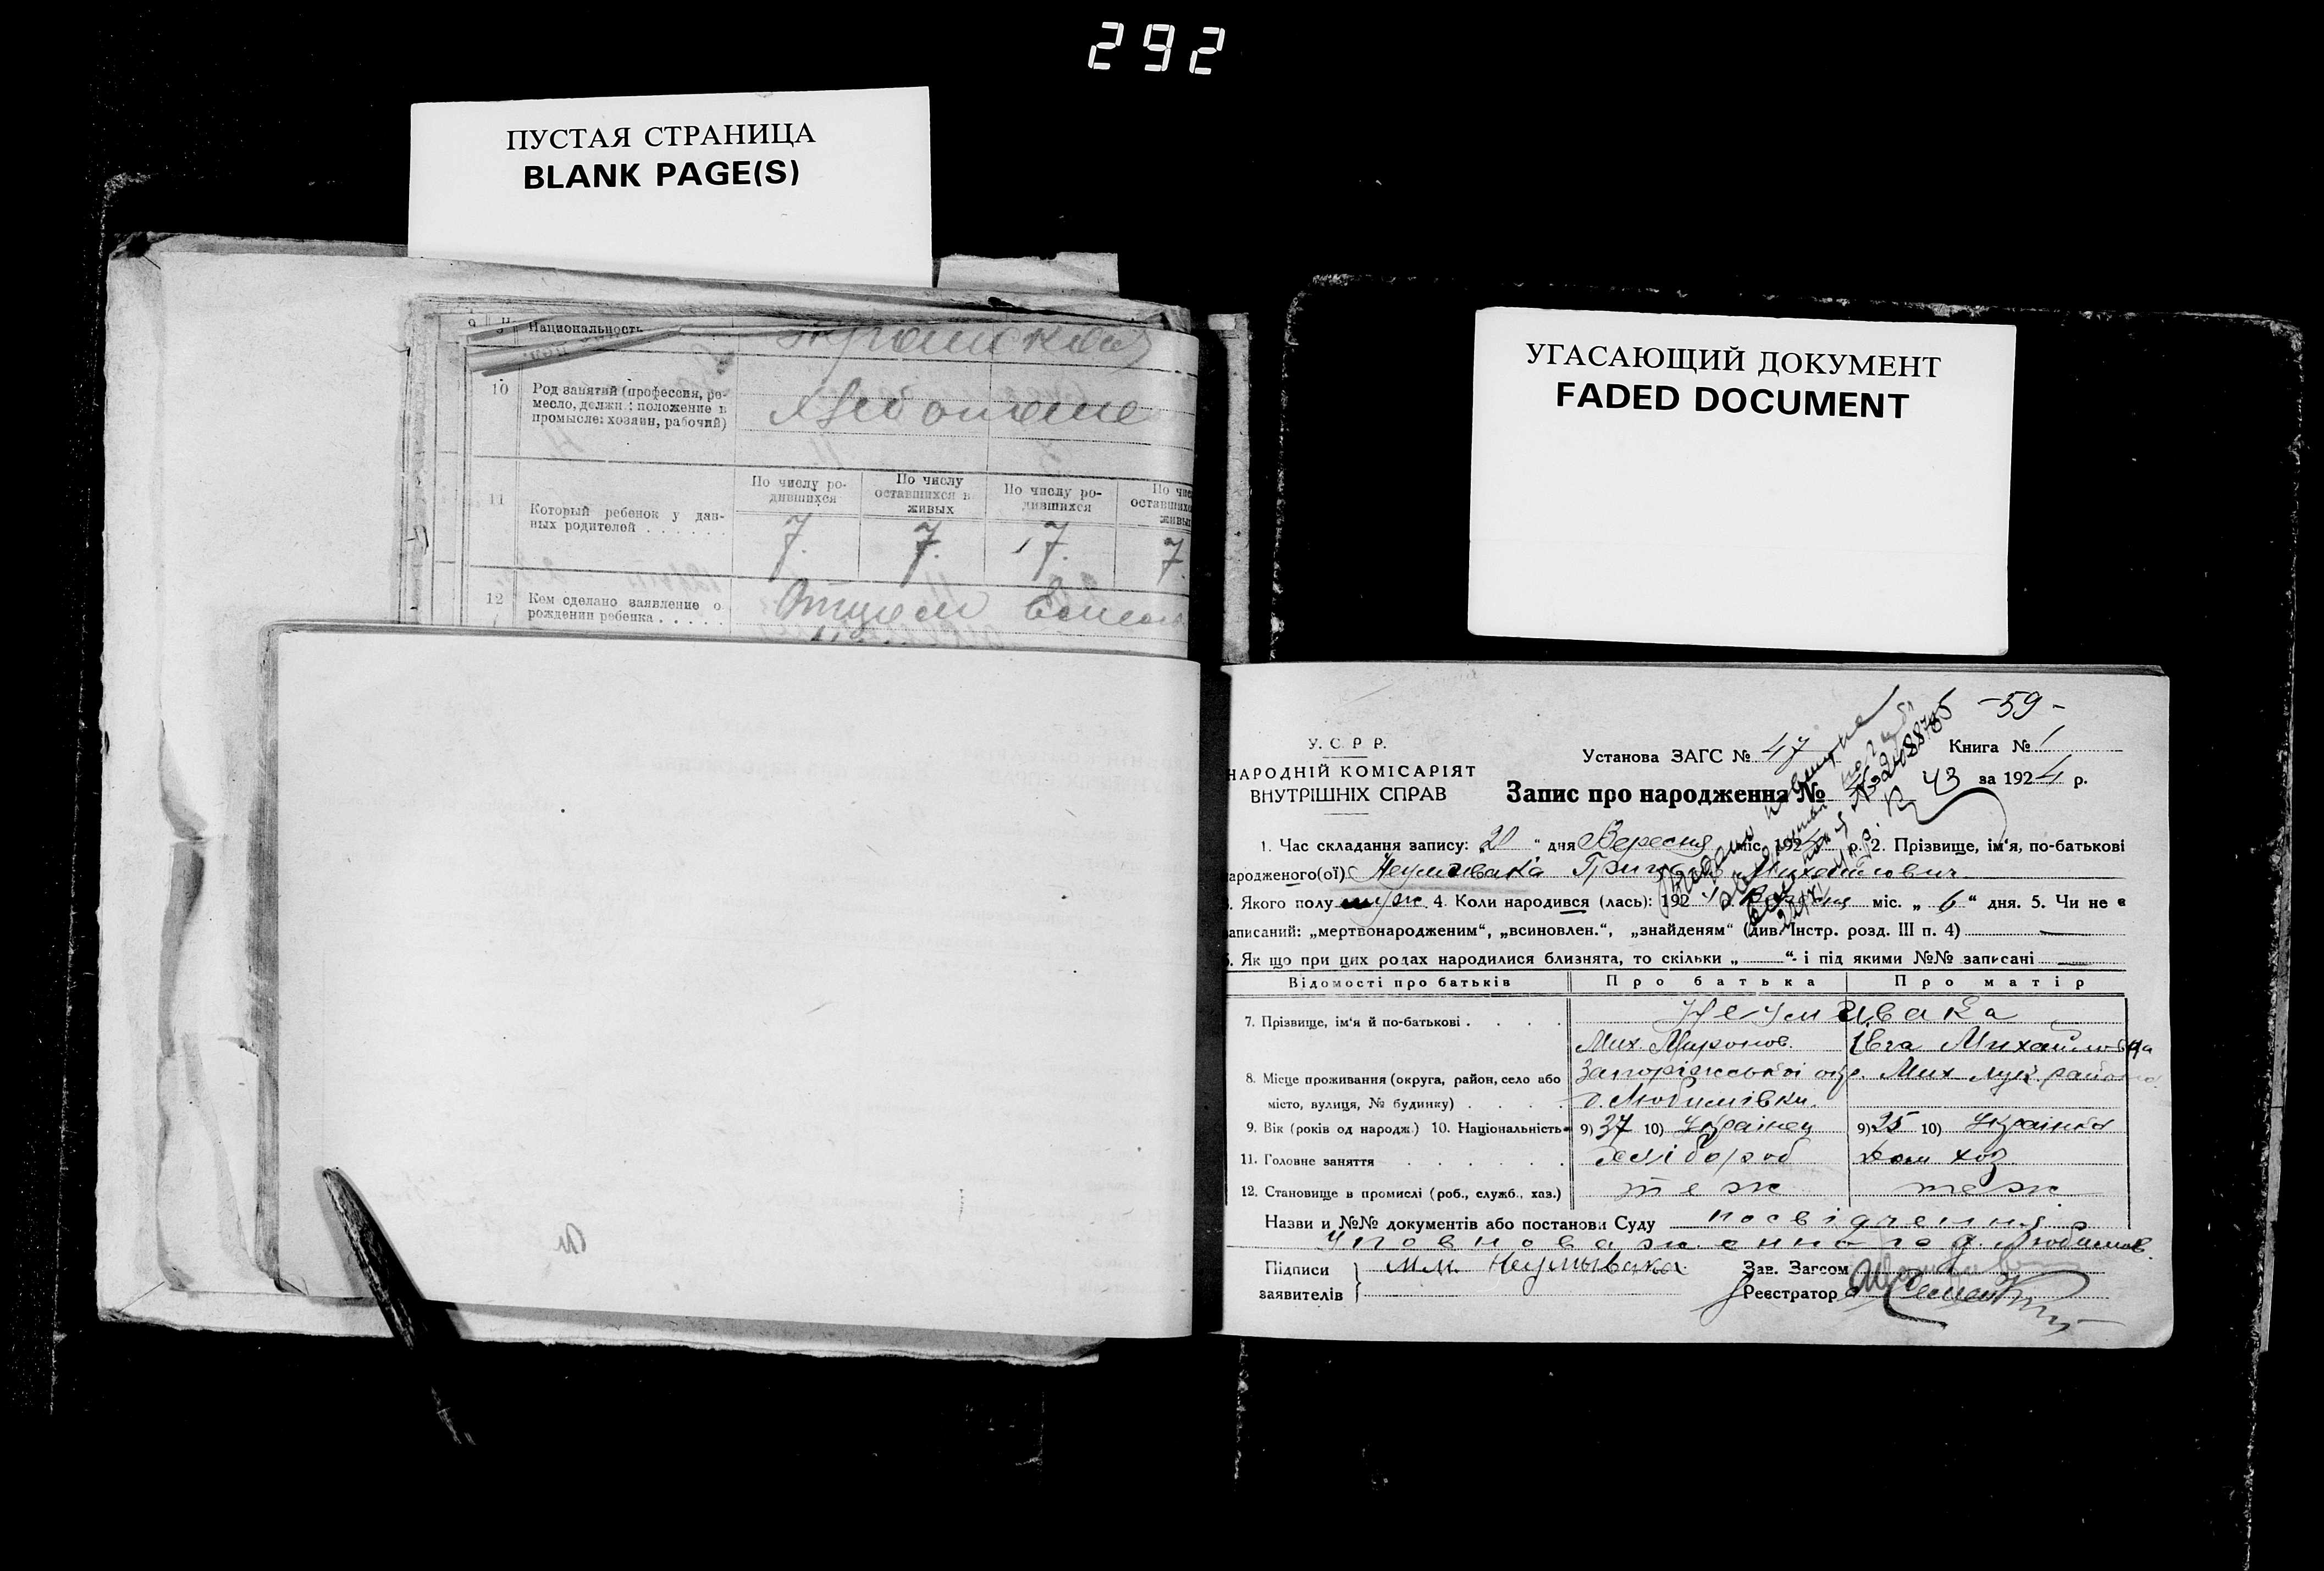 292
ПУСТАЯ СТРАНИЦА
BLANK PAGE(S)
Национальность
10 Род занятий (профессия, ре-
месло, должн.: положение в
промысле: хозяин, рабочий)
По числу ро-
дившихся
По числу
оставшихся в
живых
По числу ро-
дившихся
11 Который ребенок у дан-
ных родителей . . . . . .
7. 7. 7. 7.
12 Кем сделано заявление о
рождении ребенка . . . . .
Отцем
УГАСАЮЩИЙ ДОКУМЕНТ
FADED DOCUMENT
-59-
У. С. Р. Р.
НАРОДНІЙ КОМІСАРІЯТ
ВНУТРІШНІХ СПРАВ
Установа ЗАГС № 47 Книга № 1
Запис про народження № 43 за 1924 р.
№ 2088785
1. Час складання запису: „20“ дня Вересня міс. 1924 р. 2. Прізвище, ім'я, по-батькові
ародженого(ої) Неумивака Михайлович
Якого полу муж. 4. Коли народився (лась): 192 міс. „6“ дня. 5. Чи не є
аписаний: „мертвонародженим“, „всиновлен.“, „знайденям“ (див. Інстр. розд. III п. 4) —
Як що при цих родах народилися близнята, то скільки „—“ і під якими №№ записані —
Відомості про батьків Про батька Про матір
7. Прізвище, ім'я й по-батькові . . . . Неумивака
Мих. Миронов. Івга Михайловна
8. Місце проживання (округа, район, село або Запоріжської окр. Мих Лук. района
місто, вулиця, № будинку) . . . . с. Любимівки.
9. Вік (років од народж.) 10. Національність 9) 37 10) Українец 9) 25 10) Українка
11. Головне заняття . . . . . . Хлібороб Дом хоз.
12. Становище в промислі (роб., служб., хаз.) теж теж
Назви и №№ документів або постанови Суду посвідчення
Уповноваженного Любимов.
Підписи М.М. Неумывака Зав. Загсом
заявителів Реєстратор